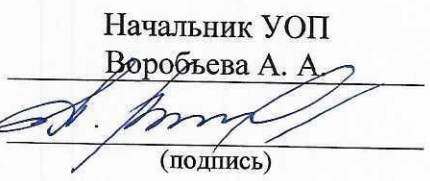 Начальник УОП
Воробьева А. А.
(подпись)